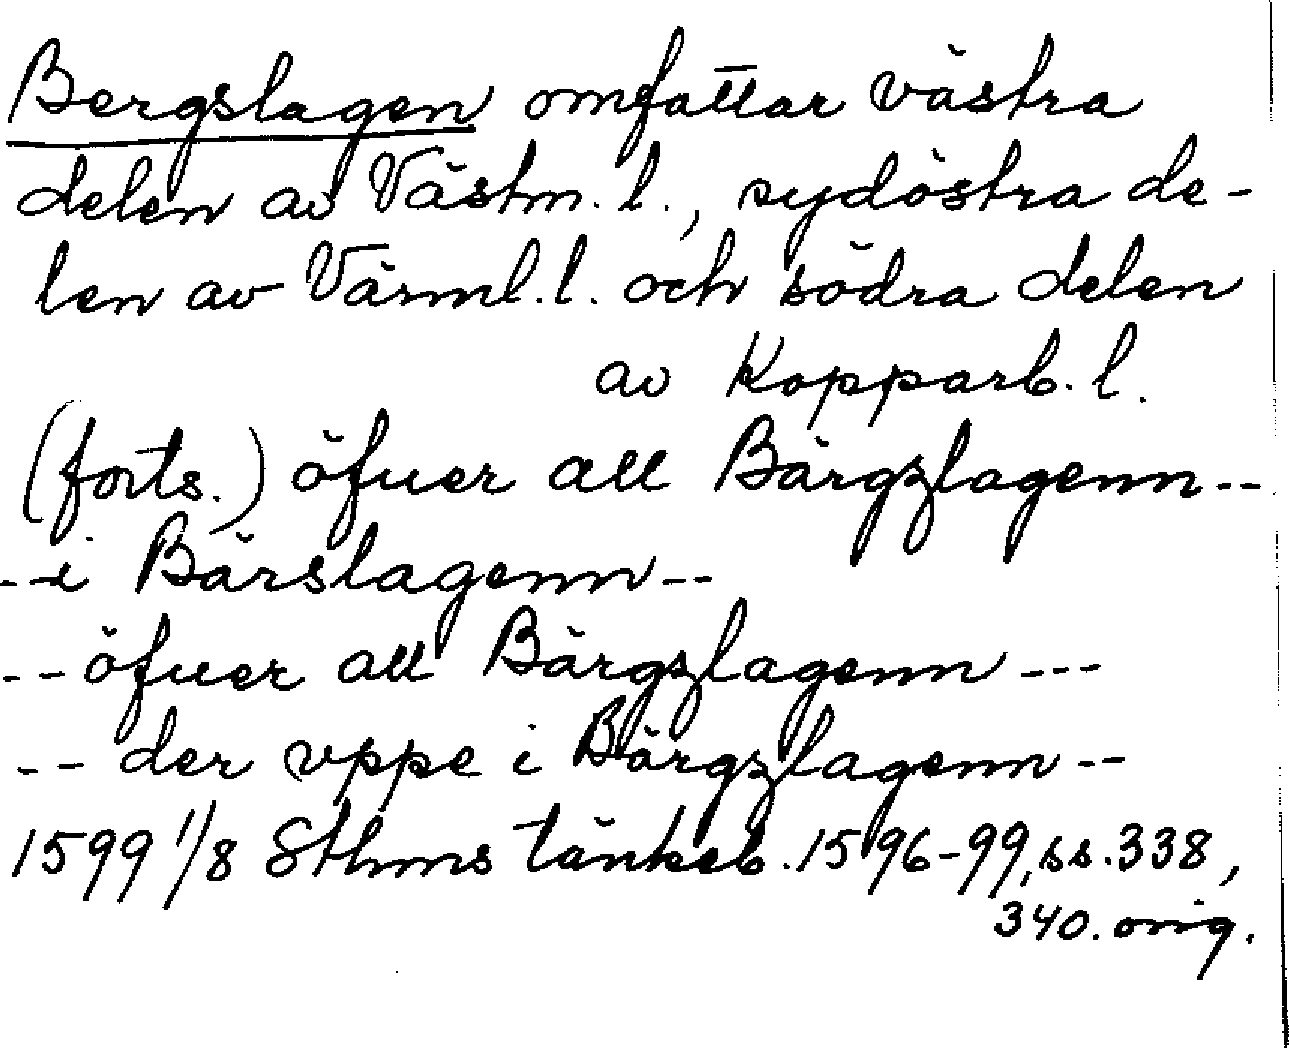 Bergslagen omfattar västra
delen av Västm. l., sydöstra de-
len av Värml. l. och södra delen
av Kopparb. l.
(forts.) öfuer all Bärgzlagenn --
-- i Bärslagenn --
-- öfuer all Bärgzlagenn ---
-- der vppe i Bärgzlagenn --
1599 1/8 Sthms tänkeb. 1596-99, ss. 338,
340. orig.